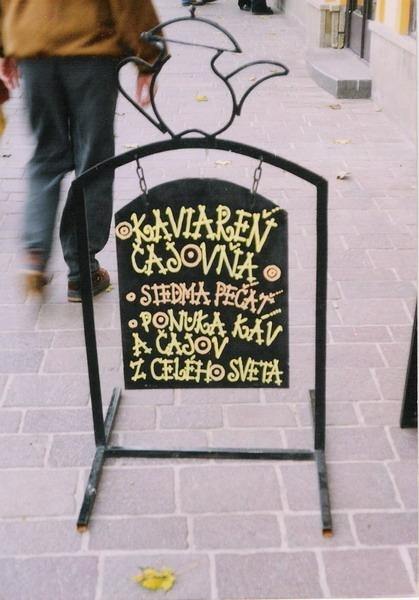 KAVIAREŇ
ČAJOVŇA
SIEDMA PEČAŤ
PONUKA KÁV
A ČAJOV
Z CELÉHO SVETA